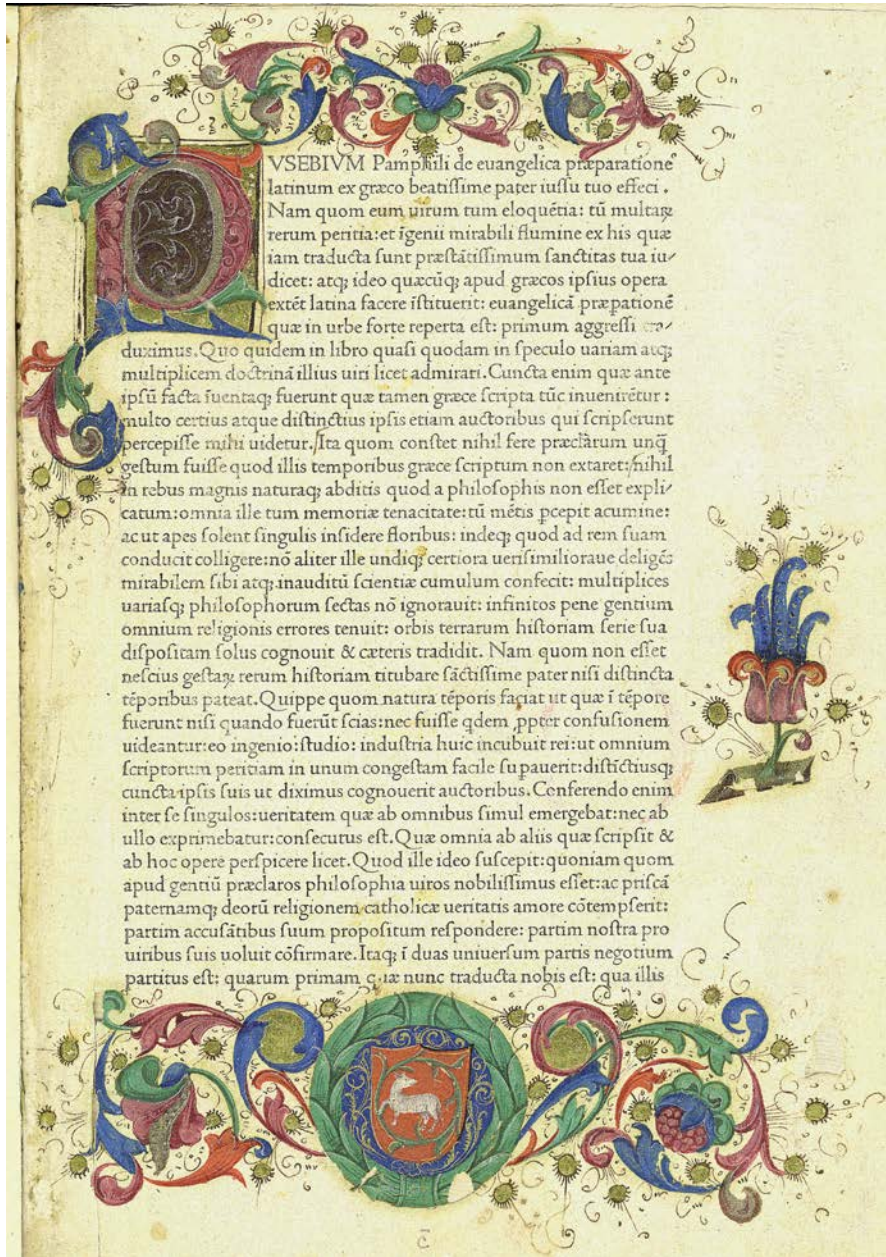 VSEBIVM Pamphili de euangelica præparatione
latinum ex græco beatiſſime pater iuſſu tuo effeci .
Nam quom eum uirum tum eloquẽtia: tũ multaꝝ
rerum peritia:et ĩgenii mirabili flumine ex his quæ
iam traducta ſunt præſtãtiſſimum ſanctitas tua iu/
dicet: atqꝫ ideo quæcũqꝫ apud græcos ipſius opera
extẽt latina facere ĩſtituerit: euangelicã præpationẽ
quæ in urbe forte reperta eſt: primum aggreſſi tra/
duximus.Quo quidem in libro quaſi quodam in ſpeculo uariam atqꝫ
multiplicem doctrinã illius uiri licet admirari.Cuncta enim quæ ante
ipſũ facta ĩuentaqꝫ fuerunt quæ tamen græce ſcripta tũc inuenirẽtur :
multo certius atque diſtinctius ipſis etiam auctoribus qui ſcripſerunt
percepiſſe mihi uidetur. Ita quom conſtet nihil fere præclarum unq̃
geſtum fuiſſe quod illis temporibus græce ſcriptum non extaret: nihil
in rebus magnis naturaqꝫ abditis quod a philoſophis non eſſet expli/
catum:omnia ille tum memoriæ tenacitate: tũ mẽtis ꝑcepit acumine:
ac ut apes ſolent ſingulis inſidere floribus: indeqꝫ quod ad rem ſuam
conducit colligere:nõ aliter ille undiqꝫ certiora ueriſimilioraue deligẽs
mirabilem ſibi atqꝫ inauditũ ſcientiæ cumulum confecit: multiplices
uariaſqꝫ philoſophorum ſectas nõ ignorauit: infinitos pene gentium
omnium religionis errores tenuit: orbis terrarum hiſtoriam ſerie ſua
diſpoſitam ſolus cognouit & cæteris tradidit. Nam quom non eſſet
neſcius geſtaꝝ rerum hiſtoriam titubare ſãctiſſime pater niſi diſtincta
tẽporibus pateat.Quippe quom natura tẽporis faciat ut quæ ĩ tẽpore
fuerunt niſi quando fuerũt ſcias:nec fuiſſe qdem ꝓpter confuſionem
uideantur:eo ingenio:ſtudio: induſtria huic incubuit rei:ut omnium
ſcriptorum peritiam in unum congeſtam facile ſupauerit:diſtictiusqꝫ
cuncta ipſis ſuis ut diximus cognouerit auctoribus.Conferendo enim
inter ſe ſingulos:ueritatem quæ ab omnibus ſimul emergebat:nec ab
ullo exprimebatur:conſecutus eſt.Quæ omnia ab aliis quæ ſcripſit &
ab hoc opere perſpicere licet.Quod ille ideo ſuſcepit:quoniam quom
apud gentiũ præclaros philoſophia uiros nobiliſſimus eſſet:ac priſcã
paternamqꝫ deorũ religionem catholicæ ueritatis amore cõtempſerit:
partim accuſãtibus ſuum propoſitum reſpondere: partim noſtra pro
uiribus ſuis uoluit cõfirmare.Itaqꝫ ĩ duas uniuerſum partis negotium
partitus eſt: quarum primam quæ nunc traducta nobis eſt: qua illis